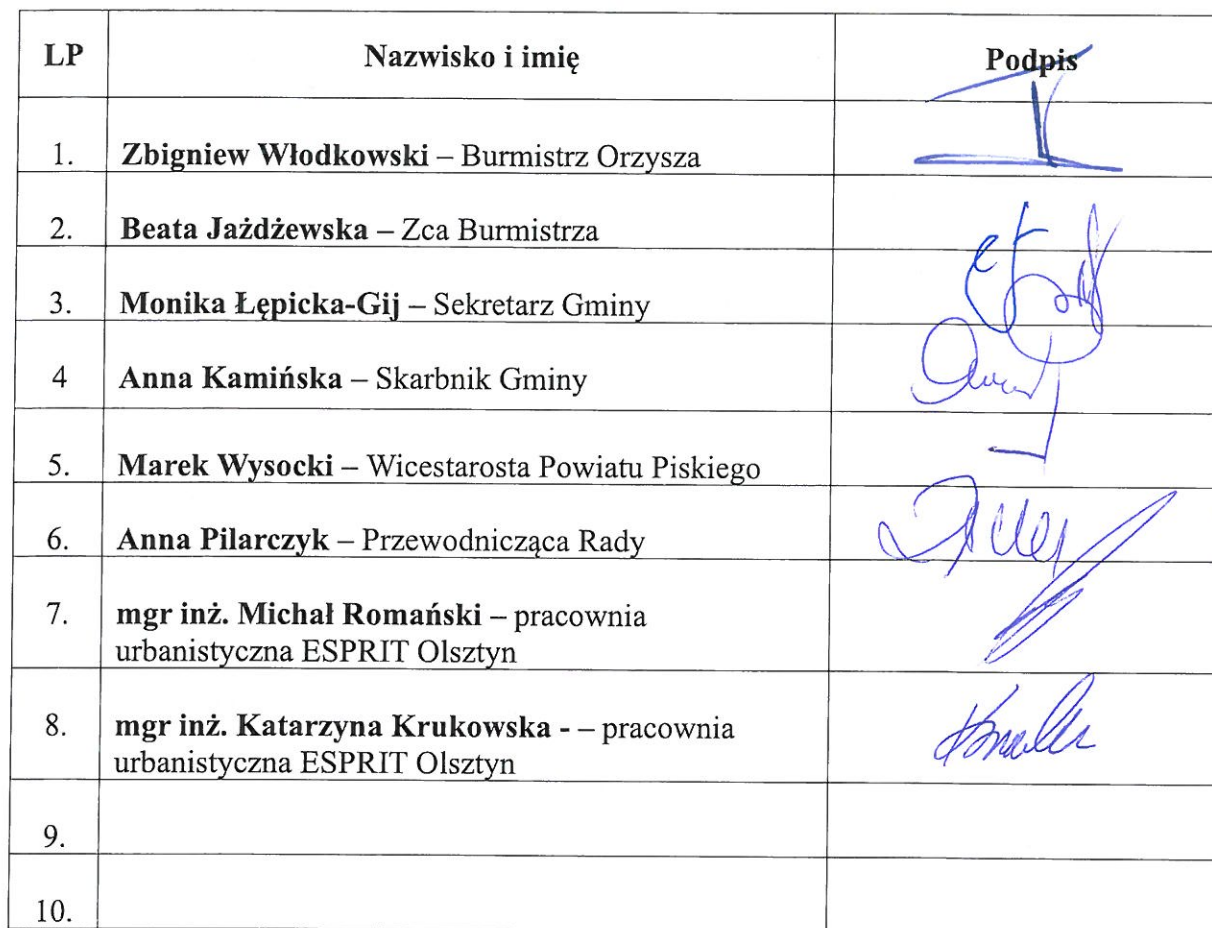 LP Nazwisko i imię Podpis
1. Zbigniew Włodkowski – Burmistrz Orzysza
2. Beata Jażdżewska – Zca Burmistrza
3. Monika Łępicka-Gij – Sekretarz Gminy
4 Anna Kamińska – Skarbnik Gminy
5. Marek Wysocki – Wicestarosta Powiatu Piskiego
6. Anna Pilarczyk – Przewodnicząca Rady
7. mgr inż. Michał Romański – pracownia
urbanistyczna ESPRIT Olsztyn
8. mgr inż. Katarzyna Krukowska - – pracownia
urbanistyczna ESPRIT Olsztyn
9.
10.